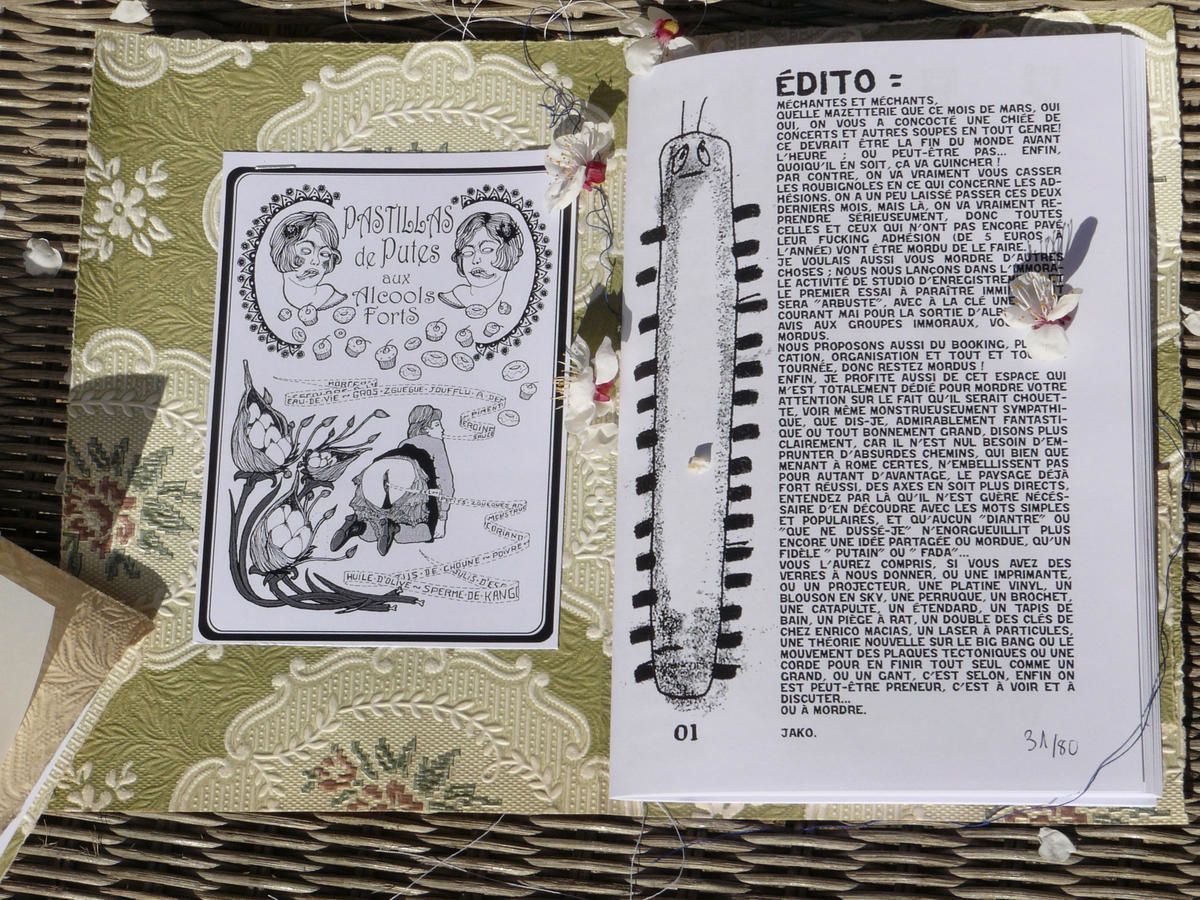 PASTILLAS
de Putes
aux
Alcools
Forts
EAU-DE-VIE~GROS-ZGUEGUE-JOUFFLU-A
PIMENT
CORIAND
POIVRE
HUILE-D'OLIVE~SPERME-DE-KANGO
ÉDITO =
MÉCHANTES ET MÉCHANTS,
QUELLE MAZETTERIE QUE CE MOIS DE MARS, OUI
OUI, ON VOUS A CONCOCTÉ UNE CHIÉE DE
CONCERTS ET AUTRES SOUPES EN TOUT GENRE!
CE DEVRAIT ÊTRE LA FIN DU MONDE AVANT
L'HEURE ; OU PEUT-ÊTRE PAS... ENFIN,
QUOIQU'IL EN SOIT, ÇA VA GUINCHER !
PAR CONTRE, ON VA VRAIMENT VOUS CASSER
LES ROUBIGNOLES EN CE QUI CONCERNE LES AD-
HÉSIONS. ON A UN PEU LAISSÉ PASSER CES DEUX
DERNIERS MOIS, MAIS LÀ, ON VA VRAIMENT RE-
PRENDRE SÉRIEUSEMENT, DONC TOUTES
CELLES ET CEUX QUI N'ONT PAS ENCORE PAYÉ
LEUR FUCKING ADHÉSION (DE 5 EUROS À
L'ANNÉE) VONT ÊTRE MORDU DE LE FAIRE.
JE VOULAIS AUSSI VOUS MORDRE D'AUTRES
CHOSES ; NOUS NOUS LANÇONS DANS L'IMMORA-
LE ACTIVITÉ DE STUDIO D'ENREGISTREMENT
LE PREMIER ESSAI À PARAÎTRE IMMI
SERA "ARBUSTE", AVEC À LA CLÉ UNE
COURANT MAI POUR LA SORTIE D'AL
AVIS AUX GROUPES IMMORAUX,
MORDUS.
NOUS PROPOSONS AUSSI DU BOOKING,
CATION, ORGANISATION ET TOUT ET
TOURNÉE, DONC RESTEZ MORDUS !
ENFIN, JE PROFITE AUSSI DE CET ESPACE QUI
M'EST TOTALEMENT DÉDIÉ POUR MORDRE VOTRE
ATTENTION SUR LE FAIT QU'IL SERAIT CHOUET-
TE, VOIR MÊME MONSTRUEUSEMENT SYMPATHI-
QUE, QUE DIS-JE, ADMIRABLEMENT FANTASTI-
QUE OU TOUT BONNEMENT GRAND, DISONS PLUS
CLAIREMENT, CAR IL N'EST NUL BESOIN D'EM-
PRUNTER D'ABSURDES CHEMINS, QUI BIEN QUE
MENANT À ROME CERTES, N'EMBELLISSENT PAS
POUR AUTANT D'AVANTAGE, LE PAYSAGE DÉJÀ
FORT RÉUSSI, DES AXES EN SOIT PLUS DIRECTS,
ENTENDEZ PAR LÀ QU'IL N'EST GUÈRE NÉCÉS-
SAIRE D'EN DÉCOUDRE AVEC LES MOTS SIMPLES
ET POPULAIRES, ET QU'AUCUN "DIANTRE" OU
"QUE NE DUSSÉ-JE" N'ENORGUEUILLIT PLUS
ENCORE UNE IDÉE PARTAGÉE OU MORDUE, QU'UN
FIDÈLE " PUTAIN" OU " FADA"...
VOUS L'AUREZ COMPRIS, SI VOUS AVEZ DES
VERRES À NOUS DONNER, OU UNE IMPRIMANTE,
OU UN PROJECTEUR, UNE PLATINE VINYL, UN
BLOUSON EN SKY, UNE PERRUQUE, UN BROCHET,
UNE CATAPULTE, UN ÉTENDARD, UN TAPIS DE
BAIN, UN PIÈGE À RAT, UN DOUBLE DES CLÉS DE
CHEZ ENRICO MACIAS, UN LASER À PARTICULES,
UNE THÉORIE NOUVELLE SUR LE BIG BANG OU LE
MOUVEMENT DES PLAQUES TECTONIQUES OU UNE
CORDE POUR EN FINIR TOUT SEUL COMME UN
GRAND, OU UN GANT, C'EST SELON, ENFIN ON
EST PEUT-ÊTRE PRENEUR, C'EST À VOIR ET À
DISCUTER...
OU À MORDRE.
01
JAKO.
31/80